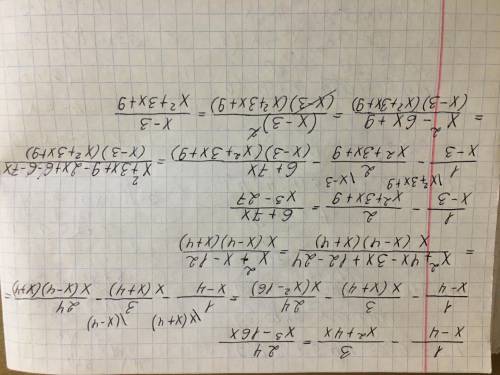 1/(x-4) - 3/(x²+4x) = 24/(x³-16x)
1/(x-4) - 3/(x(x+4)) - 24/(x(x²-16)) = 1\x(x+4)/(x-4) - 3\(x-4)/(x(x+4)) - 24/(x(x-4)(x+4)) =
= (x²+4x-3x+12-24)/(x(x-4)(x+4)) = (x²+x-12)/(x(x-4)(x+4))
1/(x-3) - 2/(x²+3x+9) = (6+7x)/(x³-27)
1\x²+3x+9/(x-3) - 2\x-3/(x²+3x+9) - (6+7x)/((x-3)(x²+3x+9)) = (x²+3x+9-2x+6-6-7x)/((x-3)(x²+3x+9))
= (x²-6x+9)/((x-3)(x²+3x+9)) = (x-3)²/((x-3)(x²+3x+9)) = (x-3)/(x²+3x+9)